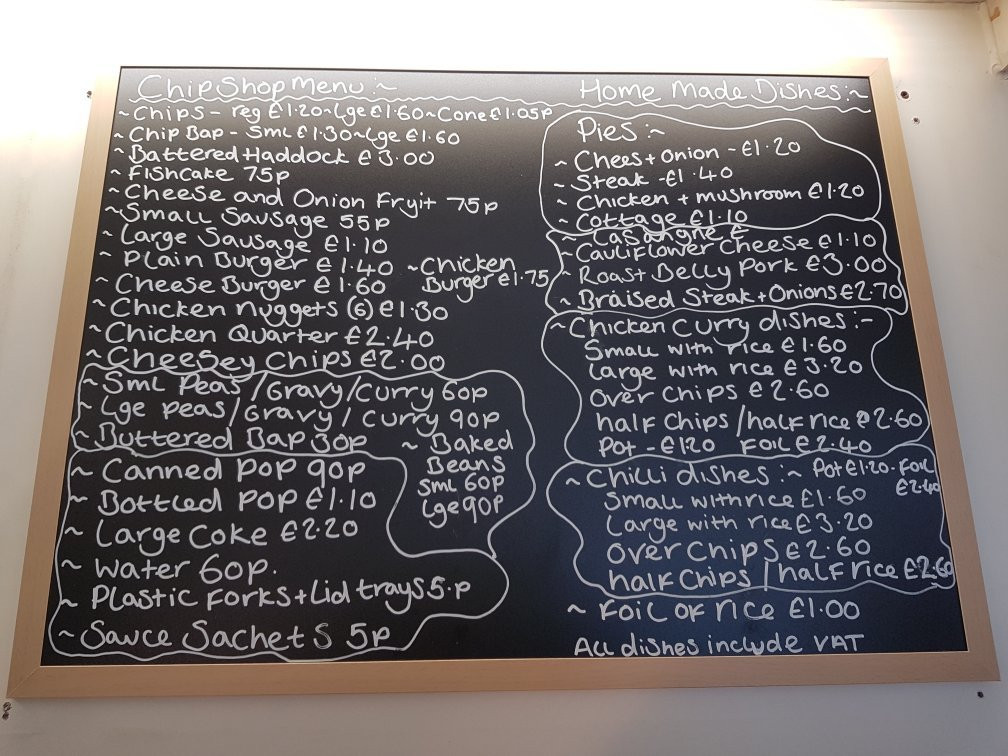 Chip Shop Menu :~
~ Chips - reg £1.20~Lge £1.60~Cone £1.05p
~ Chip Bap - Sml £1.30~Lge £1.60
~ Battered Haddock £3.00
~ Fishcake 75p
~ Cheese and Onion Fryit 75p
~ Small Sausage 55p
~ Large Sausage £1.10
~ Plain Burger £1.40
~ Cheese Burger £1.60
~ Chicken
Burger £1.75
~ Chicken Nuggets (6) £1.30
~ Chicken Quarter £2.40
~ Cheesey Chips £2.00
~ Sml Peas/Gravy/Curry 60p
~ Lge peas/Gravy/Curry 90p
~ Buttered Bap 30p
~ Baked
Beans
Sml 60p
Lge 90p
~ Canned Pop 90p
~ Bottled Pop £1.10
~ Large Coke £2.20
~ Water 60p.
~ Plastic Forks + Lid trays 5.p
~ Sauce Sachets 5p
Home Made Dishes :~
Pies :~
~ Chees + Onion - £1.20
~ Steak - £1.40
~ Chicken + mushroom £1.20
~ Cottage £1.10
~ Lasangne £
~ Cauliflower Cheese £1.10
~ Roast Belly Pork £3.00
~ Braised Steak + Onions £2.70
~ Chicken Curry dishes :-
Small with rice £1.60
Large with rice £3.20
Over Chips £2.60
half Chips / half rice £2.60
Pot - £1.20 Foil £2.40
~ Chilli dishes :~ Pot £1.20 - Foil
£2.40
Small with rice £1.60
Large with rice £3.20
Over Chips £2.60
half Chips / half rice £2.60
~ Foil of rice £1.00
All dishes include VAT